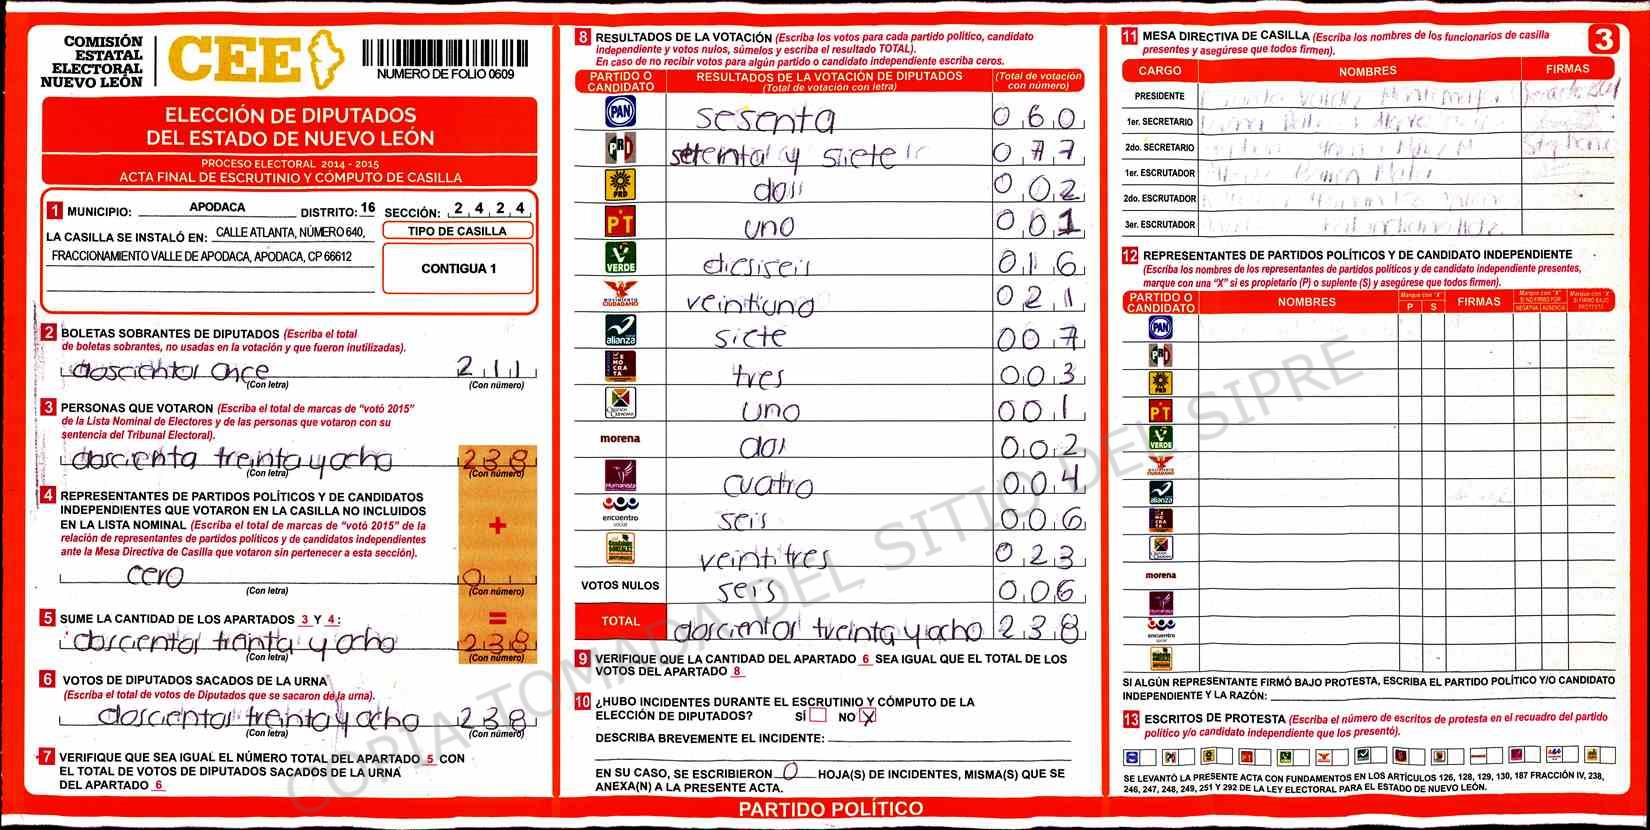 COMISIÓN
ESTATAL
ELECTORAL
NUEVO LEÓN
CEE
NUMERO DE FOLIO 0609
ELECCIÓN DE DIPUTADOS
DEL ESTADO DE NUEVO LEÓN
PROCESO ELECTORAL 2014 - 2015
ACTA FINAL DE ESCRUTINIO Y CÓMPUTO DE CASILLA
1 MUNICIPIO: APODACA DISTRITO: 16 SECCIÓN: 2 4 2 4
LA CASILLA SE INSTALÓ EN: CALLE ATLANTA, NÚMERO 640,
FRACCIONAMIENTO VALLE DE APODACA, APODACA, CP 66612
TIPO DE CASILLA
CONTIGUA 1
2 BOLETAS SOBRANTES DE DIPUTADOS (Escriba el total
de boletas sobrantes, no usadas en la votación y que fueron inutilizadas).
doscientos once 2 1 1
(Con letra) (Con número)
3 PERSONAS QUE VOTARON (Escriba el total de marcas de "votó 2015"
de la Lista Nominal de Electores y de las personas que votaron con su
sentencia del Tribunal Electoral).
doscienta treinta y ocho 2 3 8
(Con letra) (Con número)
4 REPRESENTANTES DE PARTIDOS POLÍTICOS Y DE CANDIDATOS
INDEPENDIENTES QUE VOTARON EN LA CASILLA NO INCLUIDOS
EN LA LISTA NOMINAL (Escriba el total de marcas de "votó 2015" de la
relación de representantes de partidos políticos y de candidatos independientes
ante la Mesa Directiva de Casilla que votaron sin pertenecer a esta sección).
+
cero 0
(Con letra) (Con número)
5 SUME LA CANTIDAD DE LOS APARTADOS 3 Y 4: =
doscientos treinta y ocho 2 3 8
(Con letra) (Con número)
6 VOTOS DE DIPUTADOS SACADOS DE LA URNA
(Escriba el total de votos de Diputados que se sacaron de la urna).
doscientos treinta y ocho 2 3 8
(Con letra) (Con número)
7 VERIFIQUE QUE SEA IGUAL EL NÚMERO TOTAL DEL APARTADO 5 CON
EL TOTAL DE VOTOS DE DIPUTADOS SACADOS DE LA URNA
DEL APARTADO 6
8 RESULTADOS DE LA VOTACIÓN (Escriba los votos para cada partido político, candidato
independiente y votos nulos, súmelos y escriba el resultado TOTAL).
En caso de no recibir votos para algún partido o candidato independiente escriba ceros.
PARTIDO O CANDIDATO RESULTADOS DE LA VOTACIÓN DE DIPUTADOS (Total de votación con letra) (Total de votación con número)
PAN sesenta 0 6 0
PRD setenta y siete 0 7 7
PRD dos 0 0 2
PT uno 0 0 1
VERDE dieciseis 0 1 6
MOVIMIENTO CIUDADANO veintiuno 0 2 1
alianza siete 0 0 7
DEMOCRATA tres 0 0 3
uno 0 0 1
morena dos 0 0 2
Humanista cuatro 0 0 4
encuentro social seis 0 0 6
veintitres 0 2 3
VOTOS NULOS seis 0 0 6
TOTAL doscientos treinta y ocho 2 3 8
9 VERIFIQUE QUE LA CANTIDAD DEL APARTADO 6 SEA IGUAL QUE EL TOTAL DE LOS
VOTOS DEL APARTADO 8
10 ¿HUBO INCIDENTES DURANTE EL ESCRUTINIO Y CÓMPUTO DE LA
ELECCIÓN DE DIPUTADOS? SÍ NO X
DESCRIBA BREVEMENTE EL INCIDENTE:
EN SU CASO, SE ESCRIBIERON 0 HOJA(S) DE INCIDENTES, MISMA(S) QUE SE
ANEXA(N) A LA PRESENTE ACTA.
PARTIDO POLÍTICO
11 MESA DIRECTIVA DE CASILLA (Escriba los nombres de los funcionarios de casilla
presentes y asegúrese que todos firmen).
3
CARGO NOMBRES FIRMAS
PRESIDENTE
1er. SECRETARIO
2do. SECRETARIO
1er. ESCRUTADOR
2do. ESCRUTADOR
3er. ESCRUTADOR
12 REPRESENTANTES DE PARTIDOS POLÍTICOS Y DE CANDIDATO INDEPENDIENTE
(Escriba los nombres de los representantes de partidos políticos y de candidato independiente presentes,
marque con una "X" si es propietario (P) o suplente (S) y asegúrese que todos firmen).
PARTIDO O CANDIDATO NOMBRES Marque con "X" P S FIRMAS Marque con "X" SI NO FIRMÓ POR NEGATIVA AUSENCIA Marque con "X" SI FIRMÓ BAJO PROTESTA
PAN
PRD
PT
VERDE
alianza
morena
encuentro social
SI ALGÚN REPRESENTANTE FIRMÓ BAJO PROTESTA, ESCRIBA EL PARTIDO POLÍTICO Y/O CANDIDATO
INDEPENDIENTE Y LA RAZÓN:
13 ESCRITOS DE PROTESTA (Escriba el número de escritos de protesta en el recuadro del partido
político y/o candidato independiente que los presentó).
SE LEVANTÓ LA PRESENTE ACTA CON FUNDAMENTOS EN LOS ARTÍCULOS 126, 128, 129, 130, 187 FRACCIÓN IV, 238,
246, 247, 248, 249, 251 Y 292 DE LA LEY ELECTORAL PARA EL ESTADO DE NUEVO LEÓN.
COPIA TOMADA DEL SITIO DEL SIPRE